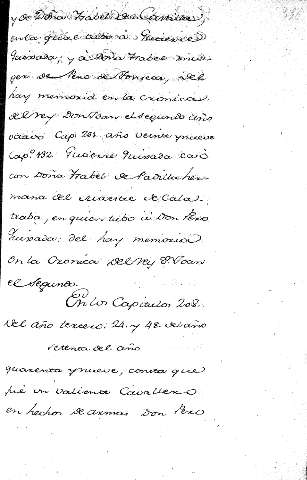 y de Doña Ysabel de Castilla,
en la qual Gutierre
Quixada; y a Doña Ysabel muger
de Pero de Fonseca, del
hay memoria en la cronica
del rey Don Joan el segundo año
octavo Cap. 201. año veinte y nueve
Cap.º 132 Gutierre Quixada casó
con Doña Ysabel de Padilla her
mana del maestre de Cala
traba, en quien tubo a Don Pero
Quixada: del hay memoria
en la Cronica del Rey D. Joan
el Segundo.
En los Capitulos 208.
del año tercero: 24. y 48. de año
setenta del año
quarenta y nueve, consta que
fué un valiente Cavallero
en hechos de armas Don Pero